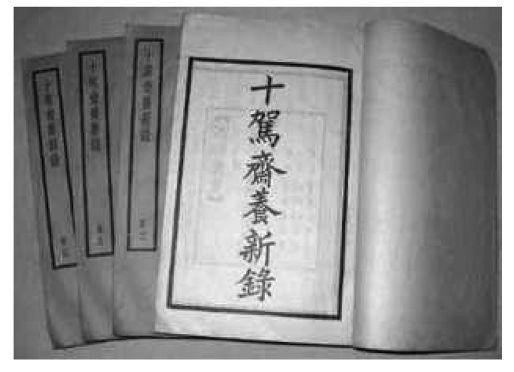 十駕齋養新錄
十駕齋養新錄
十駕齋養新錄
十駕齋養新錄